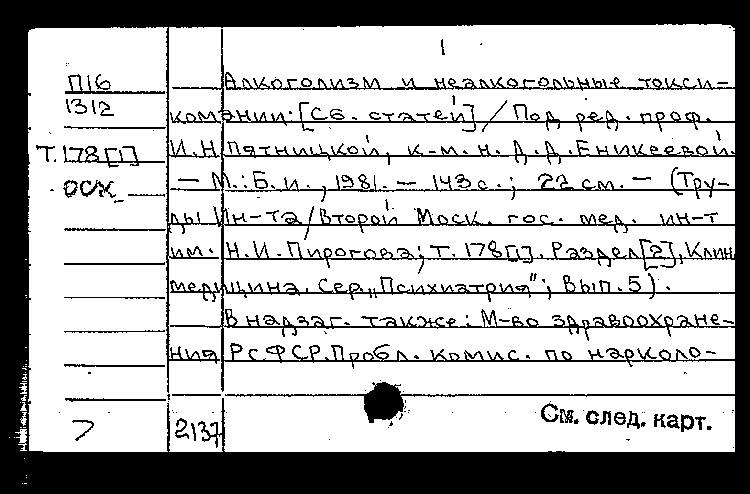 1
П16
1312
Т.178[1]
осх
Алкоголизм и неалкогольные токси-
комании: [Сб. статей] / Под ред. проф.
И.Н Пятницкой, к.м.н. Д.Д.Еникеевой.
— М.: Б.и., 1981. — 143 с.; 22 см. — (Тру-
ды Ин-та / Второй Моск. гос. мед. ин-т
им. Н.И. Пирогова; Т. 178[1]. Раздел [2], Клин
медицина. Сер. „Психиатрия"; Вып. 5).
В надзаг. также: М-во здравоохране-
ния РСФСР. Пробл. комис. по нарколо-
7
2137
См. след. карт.